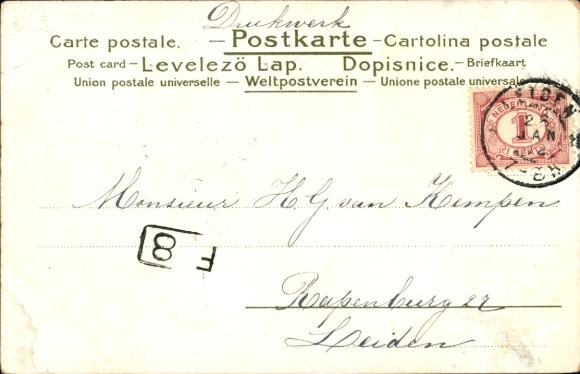 Drukwerk
Carte postale. — Postkarte — Cartolina postale
Post card — Levelezö Lap. Dopisnice. — Briefkaart
Union postale universelle — Weltpostverein — Unione postale universale
NEDERLAND
1
CENT
EIDEN
JAN
Monsieur H.G. van Kempen
F 8
Rapenburg 22
Leiden